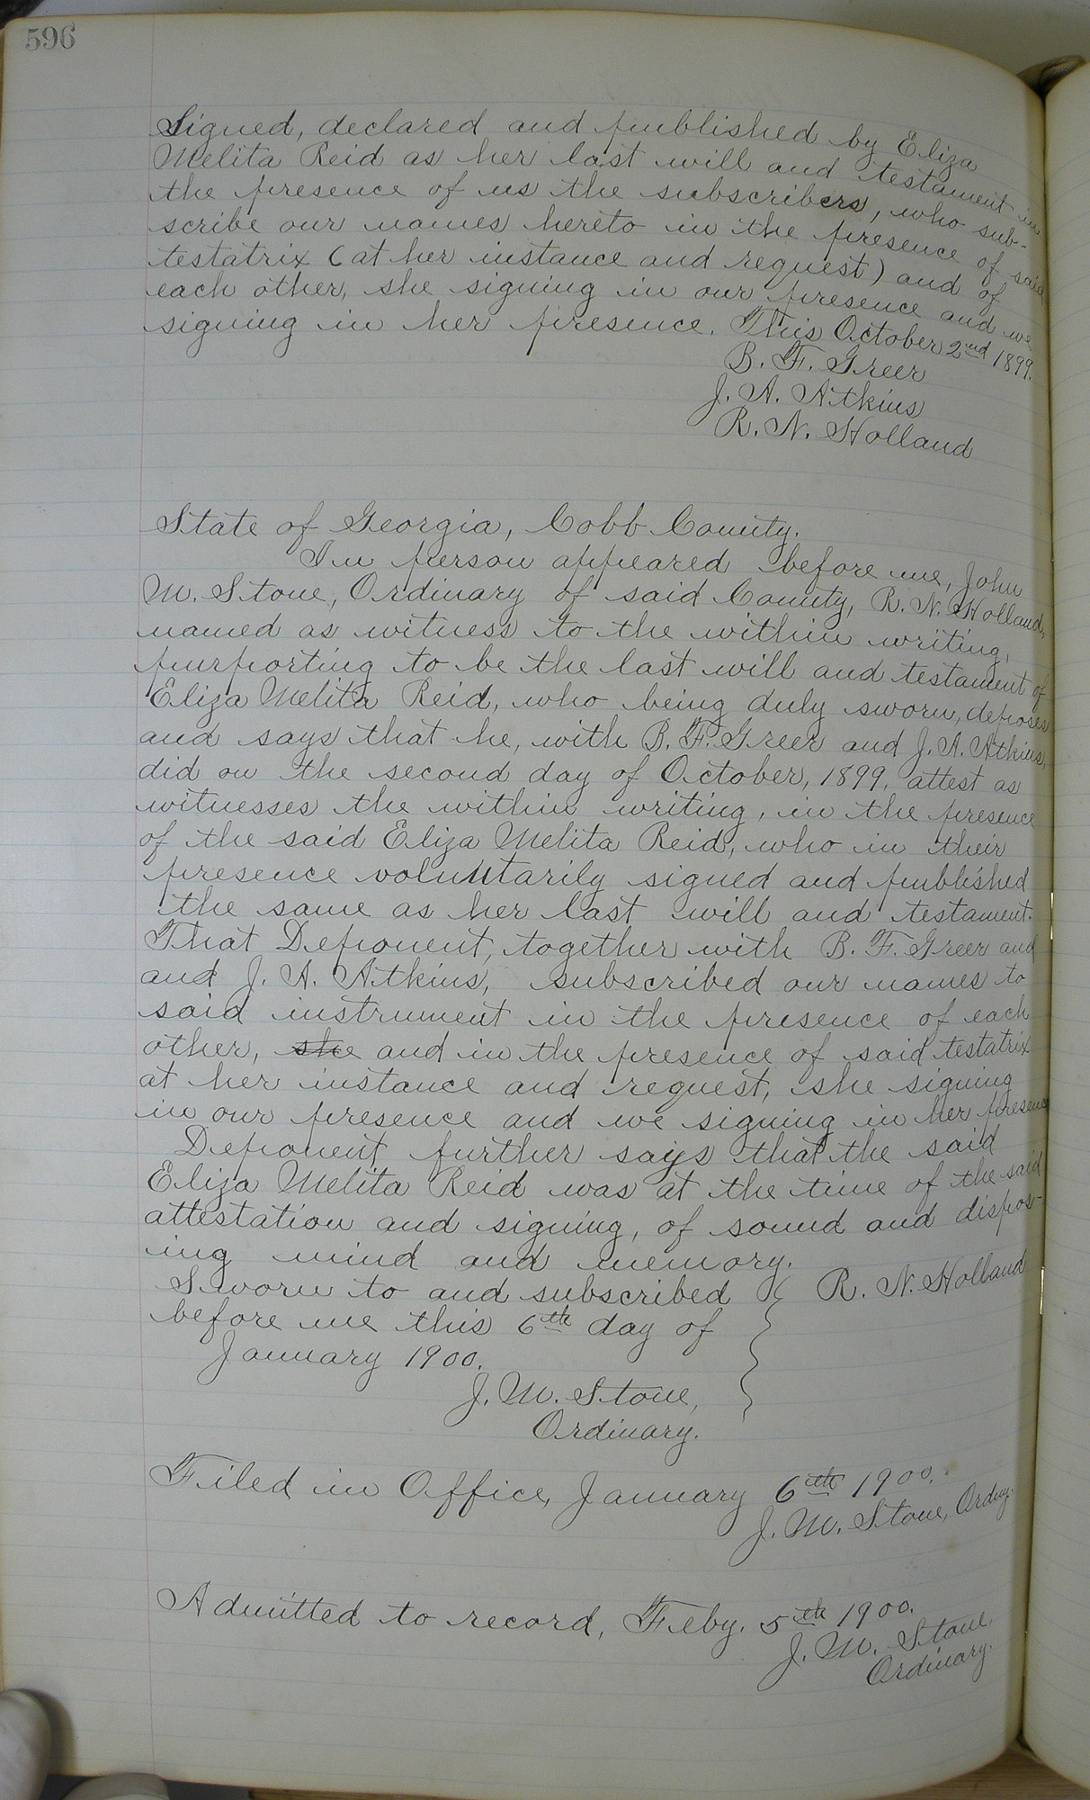 596
Signed, declared and published by Eliza
Melita Reid as her last will and testament in
the presence of us the subscribers, who sub-
scribe our names hereto in the presence of said
testatrix (at her instance and request) and of
each other, she signing in our presence and we
signing in her presence. This October 2nd 1899.
B. F. Greer
J. A. Atkins
R. N. Holland
State of Georgia, Cobb County.
In person appeared before me, John
M. Stone, Ordinary of said County, R. N. Holland,
named as witness to the within writing,
purporting to be the last will and testament of
Eliza Melita Reid, who being duly sworn, deposes
and says that he, with B. F. Greer and J. A. Atkins,
did on the second day of October, 1899, attest as
witnesses the within writing, in the presence
of the said Eliza Melita Reid, who in their
presence voluntarily signed and published
the same as her last will and testament.
That Deponent, together with B. F. Greer and
and J. A. Atkins, subscribed our names to
said instrument in the presence of each
other, she and in the presence of said testatrix
at her instance and request, she signing
in our presence and we signing in her presence
Deponent further says that the said
Eliza Melita Reid was at the time of the said
attestation and signing, of sound and dispos-
ing mind and memory.
Sworn to and subscribed } R. N. Holland
before me this 6th day of
January 1900.
J. M. Stone,
Ordinary.
Filed in Office, January 6th 1900.
J. M. Stone, Ordny.
Admitted to record, Feby. 5th 1900.
J. M. Stone
Ordinary.